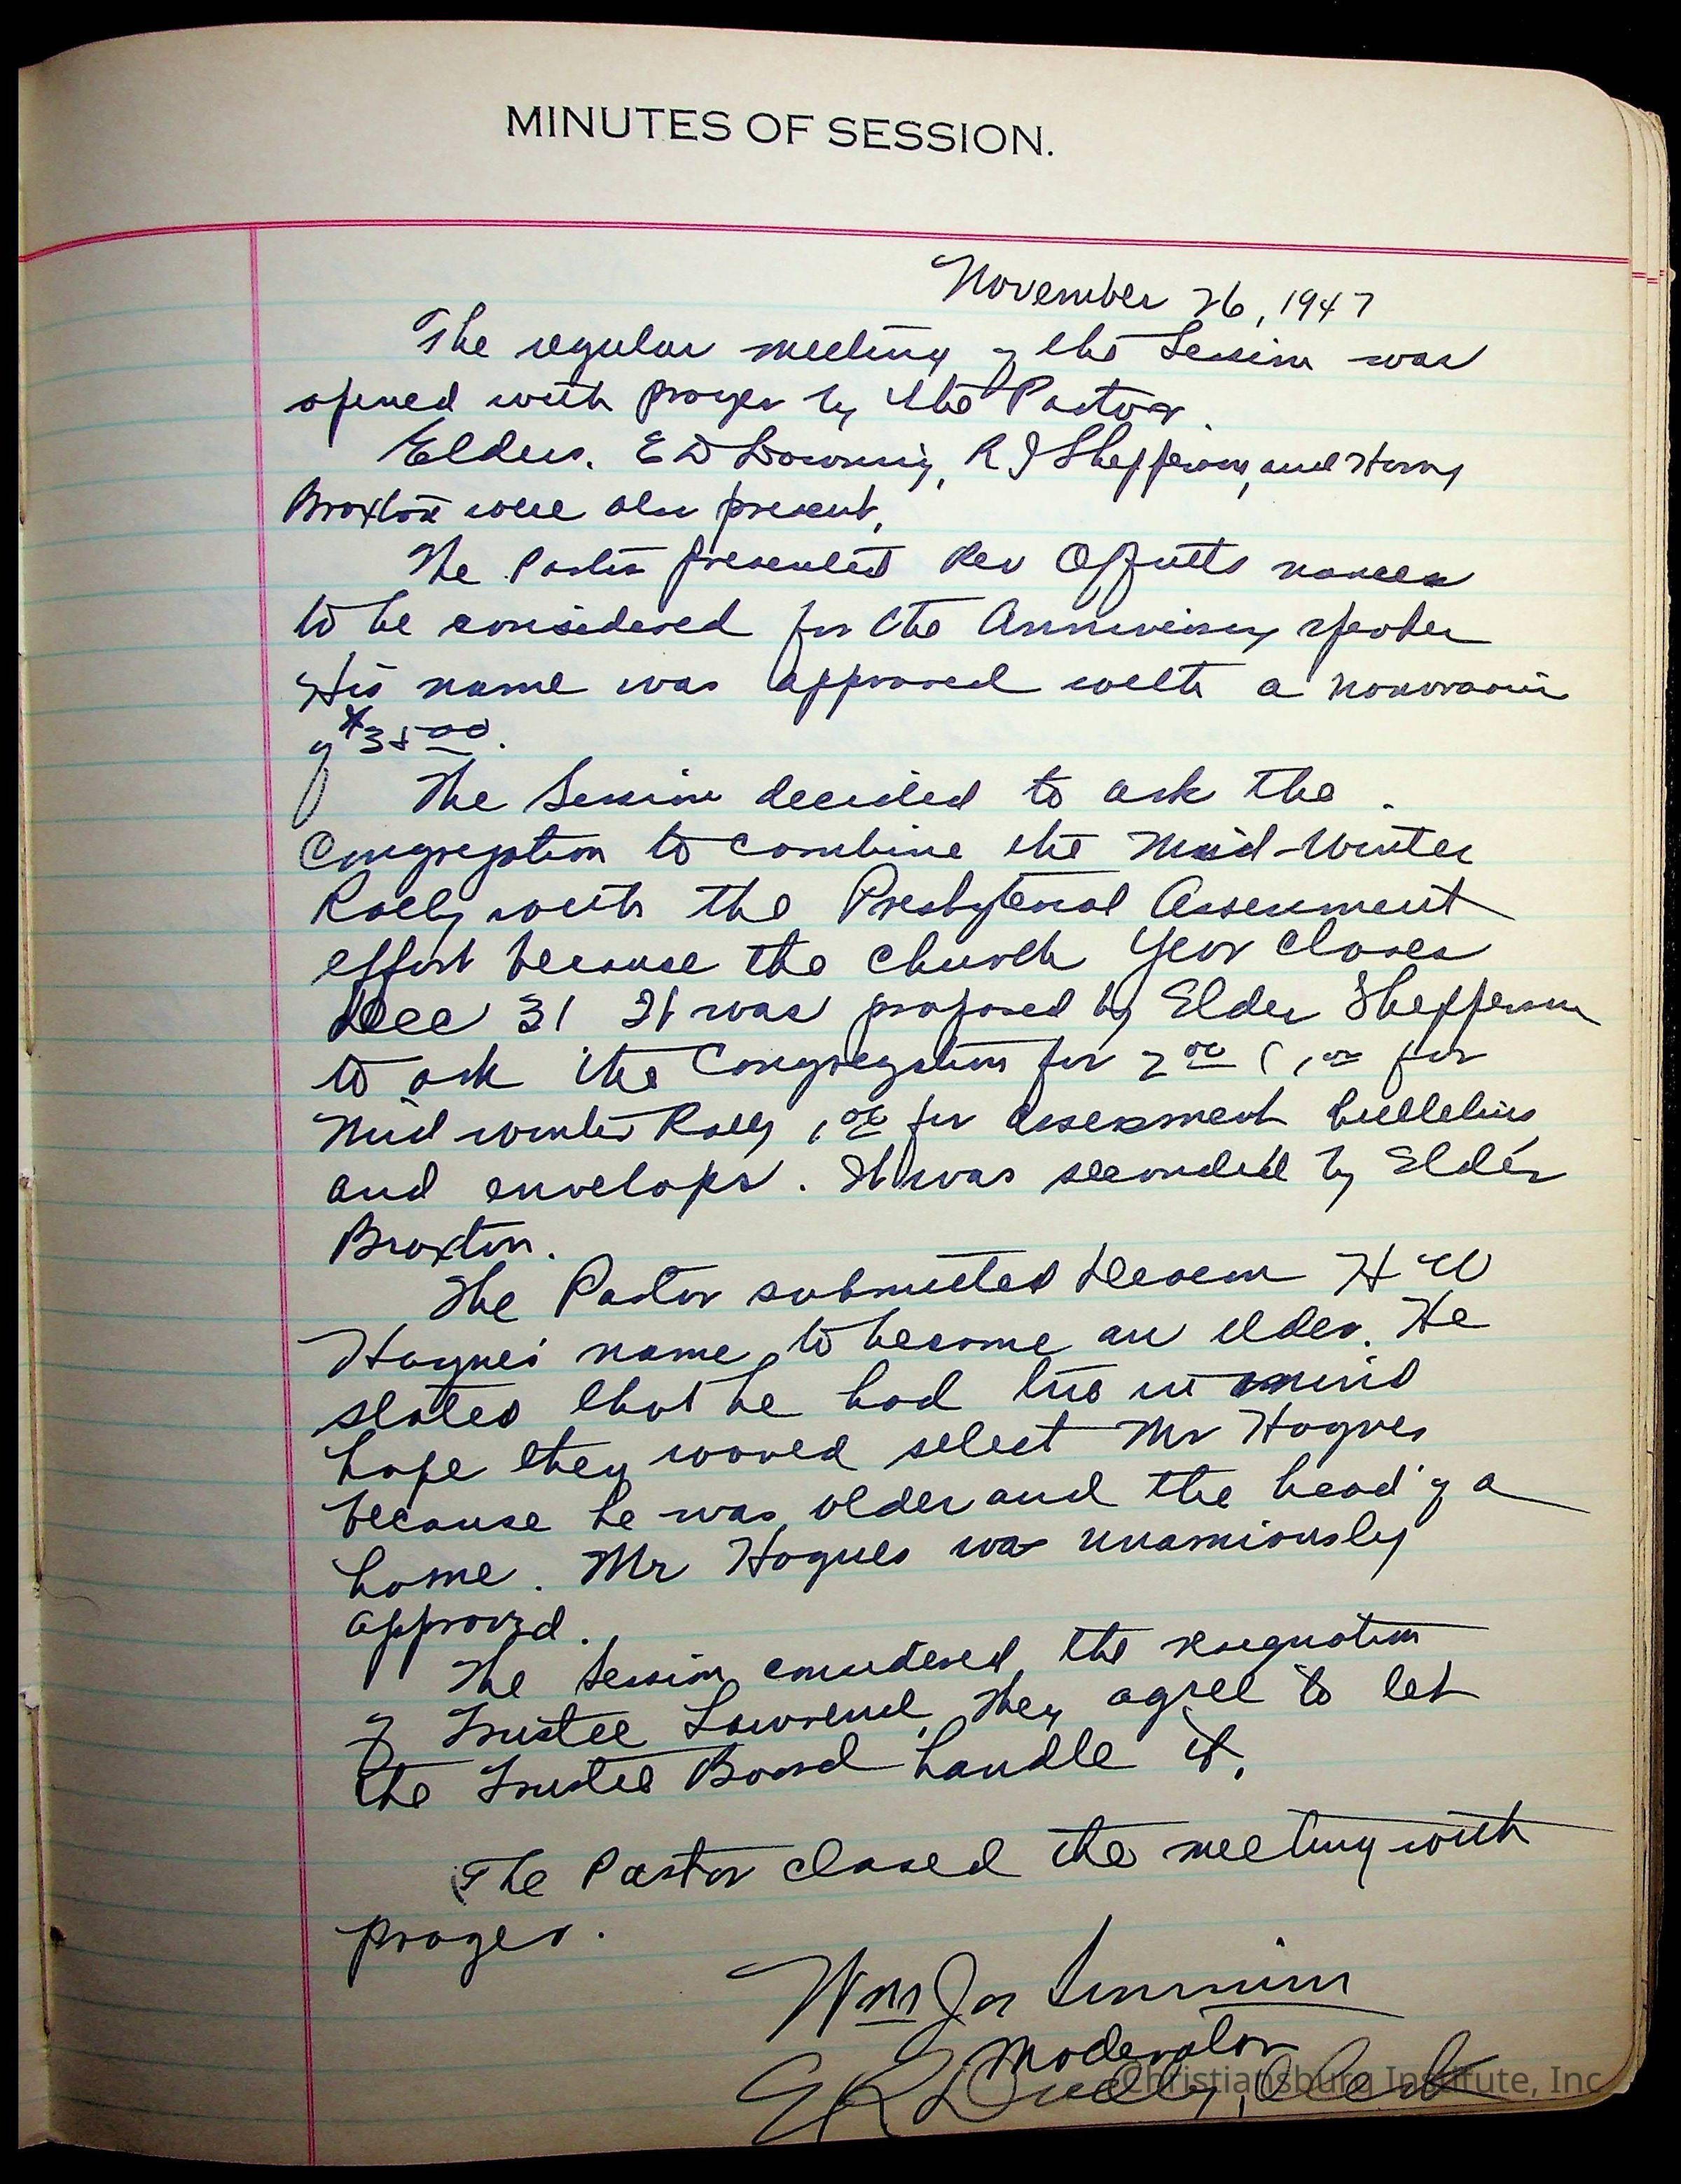 MINUTES OF SESSION.
November 26, 1947
The regular meeting of the Session was
opened with prayer by the Pastor.
Elders. E D Downing, R J Shepperson, and Harry
Braxton were also present.
The Pastor presented Rev Offutts name
to be considered for the Anniversary speaker
His name was approved with a honorarium
of $35.00.
The Session decided to ask the
Congregation to combine the Mid-Winter
Rally with the Presbyterial Assessment
effort because the church year closes
Dec 31 It was proposed by Elder Shepperson
to ask the Congregation for 2.00 (1.00 for
Mid winter Rally 1.00 for assessment bulletins
and envelops. It was seconded by Elder
Braxton.
The Pastor submitted Deacon H W
Hagues name to become an elder. He
stated that he had two in mind
hope they would select Mr Hagues
because he was older and the head of a
home. Mr Hagues was unamiously
approved.
The Session considered the resignation
of Trustee Lawrence. They agree to let
the Trustee Board handle it.
The Pastor closed the meeting with
prayer.
Wm Jas Simmons
Moderator
E R Dudley, Clerk
Christiansburg Institute, Inc